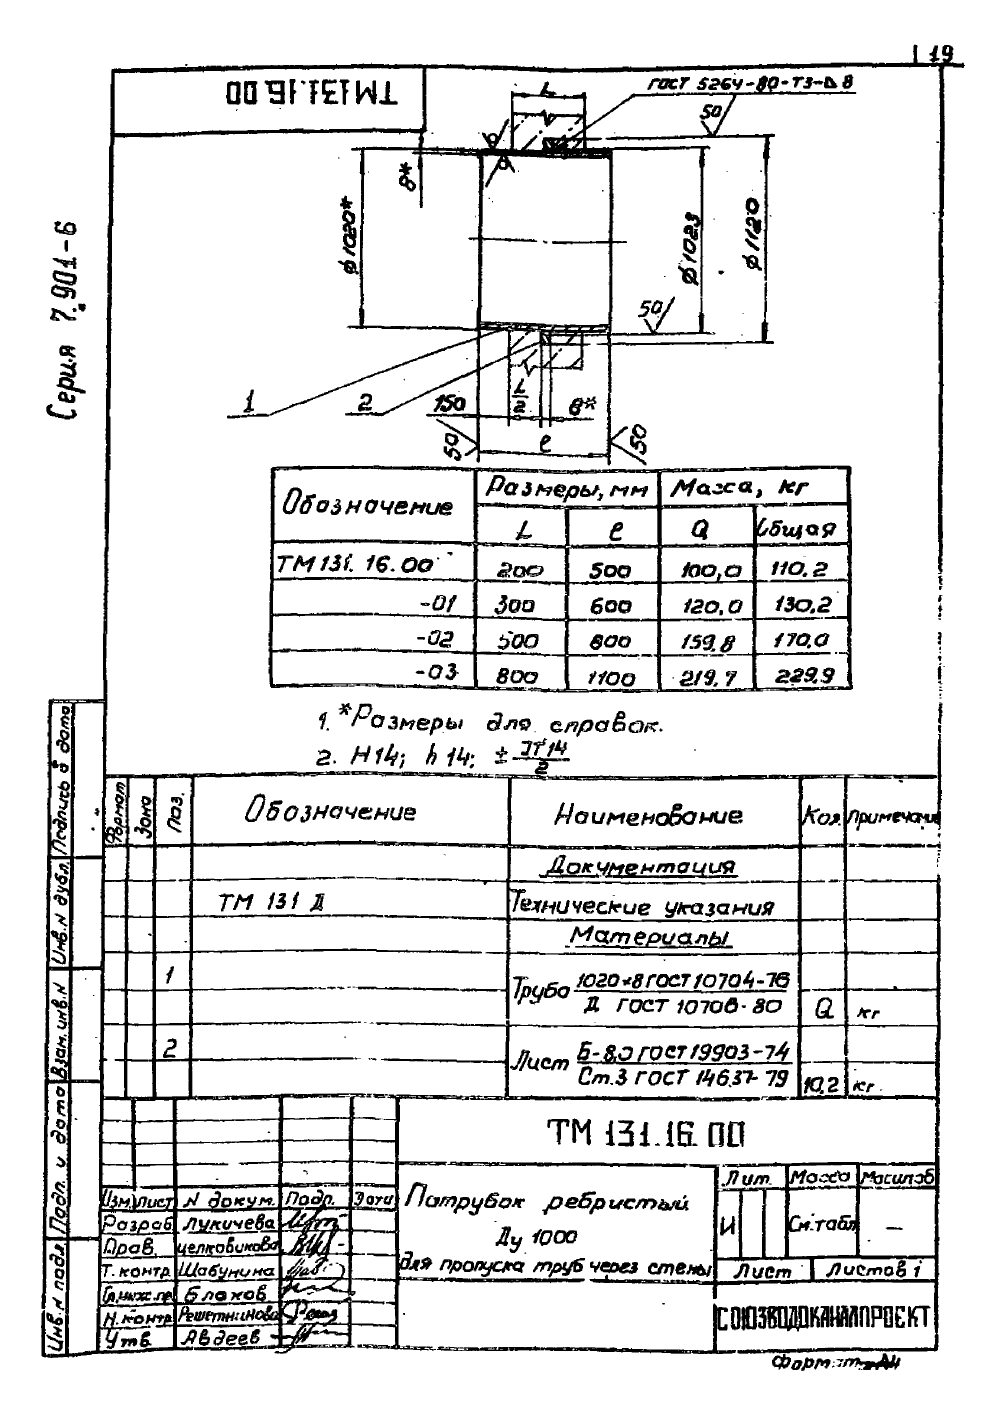 19
ТМ131.16.00
Серия 7.901-6
L
ГОСТ 5264-80-Т3-⊿8
50
8*
ø1020*
ø1023
ø1120
50
1
2
150
L/2
8*
50
ℓ
50
Обозначение
Размеры, мм
Масса, кг
L
ℓ
Q
Общая
ТМ131.16.00
200
500
100,0
110.2
-01
300
600
120,0
130,2
-02
500
800
159,8
170,0
-03
800
1100
219,7
229,9
1. *Размеры для справок.
2. H14; h14; ± IT14/2
Формат
Зона
Поз.
Обозначение
Наименование
Кол
Примечание
Документация
ТМ 131 Д
Технические указания
Материалы
1
Труба 1020×8 ГОСТ 10704-76
Д ГОСТ 10706-80
Q
кг
2
Лист Б-8,0 ГОСТ 19903-74
Ст.3 ГОСТ 14637-79
10,2
кг
Подпись и дата
Инв.N дубл.
Взам.инв.N
Подп. и дата
Инв.N подл.
ТМ 131.16.00
Изм.
Лист
N докум.
Подп.
Дата
Разраб.
Лукичева
Пров.
Целковикова
Т.контр
Шабунина
Гл.инж.пр
Блохов
Н.контр
Решетникова
Утв.
Авдеев
Патрубок ребристый
Ду 1000
для пропуска труб через стены
Лит.
Масса
Масштаб
И
См.табл
—
Лист
Листов 1
СОЮЗВОДОКАНАЛПРОЕКТ
Формат А4